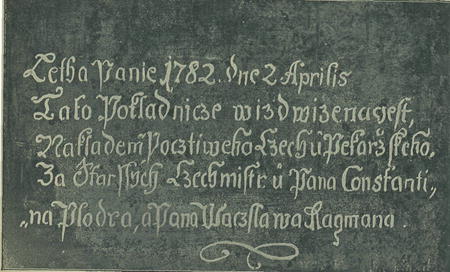 Letha Panie 1782. dne 2 Aprilis
Tato Pokladnicze wizdwizena gest,
Nakladem Pocztiweho Czechu Pekarżskeho,
Za Starssých Czechmistrů Pana Constanti„
„na Plodra, a Pana Waczslawa Ragmana.